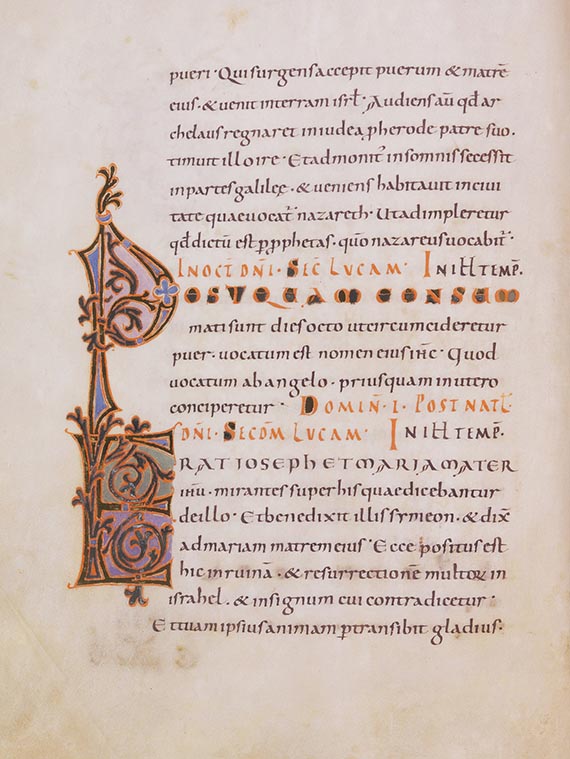 pueri · Qui surgens accepit puerum & matrē
eius · & venit in terram isrł · Audiens aū qđ ar
chelaus regnaret in iudea ꝓ herode patre suo .
timuit illo ire · Et admonit᾽ in somnis secessit
in partes galileę · & veniens habitavit in civi
tate quae vocat᾽ nazareth · Ut adimpleretur
qđ dictū est ꝑ ꝓphetas · quō nazareus vocabit᾽ ·
IN OCT DÑI · SEC̄ LUCAM · IN ILL TEMP̄ .
POSTQUAM CONSUM
mati sunt dies octo ut circumcideretur
puer · vocatum est nomen eius iħc · Quod
vocatum ab angelo · priusquam in utero
conciperetur · DOMIÑ · I · POST NATL̄
DÑI · SECDM LUCAM · IN ILL TEMP̄ ·
ERAT IOSEPH ET MARIA MATER
iħu · mirantes super his quae dicebantur
de illo · Et benedixit illis symeon · & dix̄
ad mariam matrem eius · Ecce positus est
hic in ruinā · & resurrectionē multoꝝ in
israhel · & in signum cui contradicetur ·
Et tuam ipsius animam ꝑtransibit gladius ·